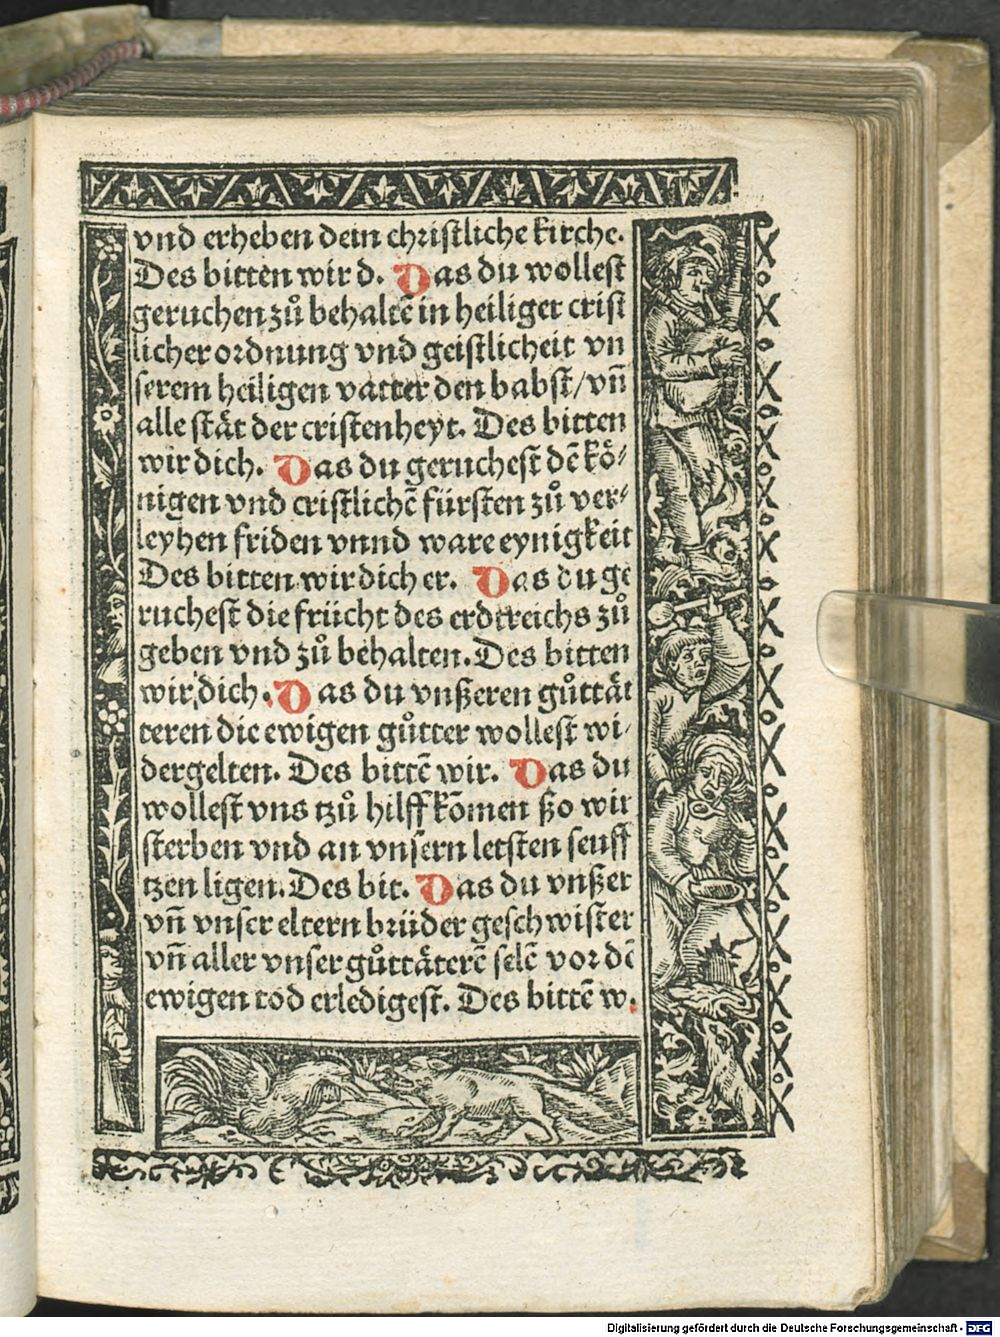 vnd erheben dein christliche kirche.
Des bitten wir d. Das du wollest
geruchen zů behaltē in heiliger crist
licher ordnung vnd geistlicheit vn
serem heiligen vatter den babst/ vn̄
alle stāt der cristenheyt. Des bitten
wir dich. Das du geruchest dē kö⸗
nigen vnd cristlichē fürsten zů ver⸗
leyhen friden vnnd ware eynigkeit
Des bitten wir dich er. Das du ge
ruchest die frücht des erdtreichs zů
geben vnd zů behalten. Des bitten
wir dich. Das du vnßeren gůttät
teren die ewigen gůtter wollest wi⸗
dergelten. Des bittē wir. Das du
wollest vns tzů hilff kōmen ßo wir
sterben vnd an vnsern letsten seuff
tzen ligen. Des bit. Das du vnßer
vn̄ vnser eltern brüder geschwister
vn̄ aller vnser gůttäterē selē vor dē
ewigen tod erledigest. Des bittē w.
Digitalisierung gefördert durch die Deutsche Forschungsgemeinschaft - DFG